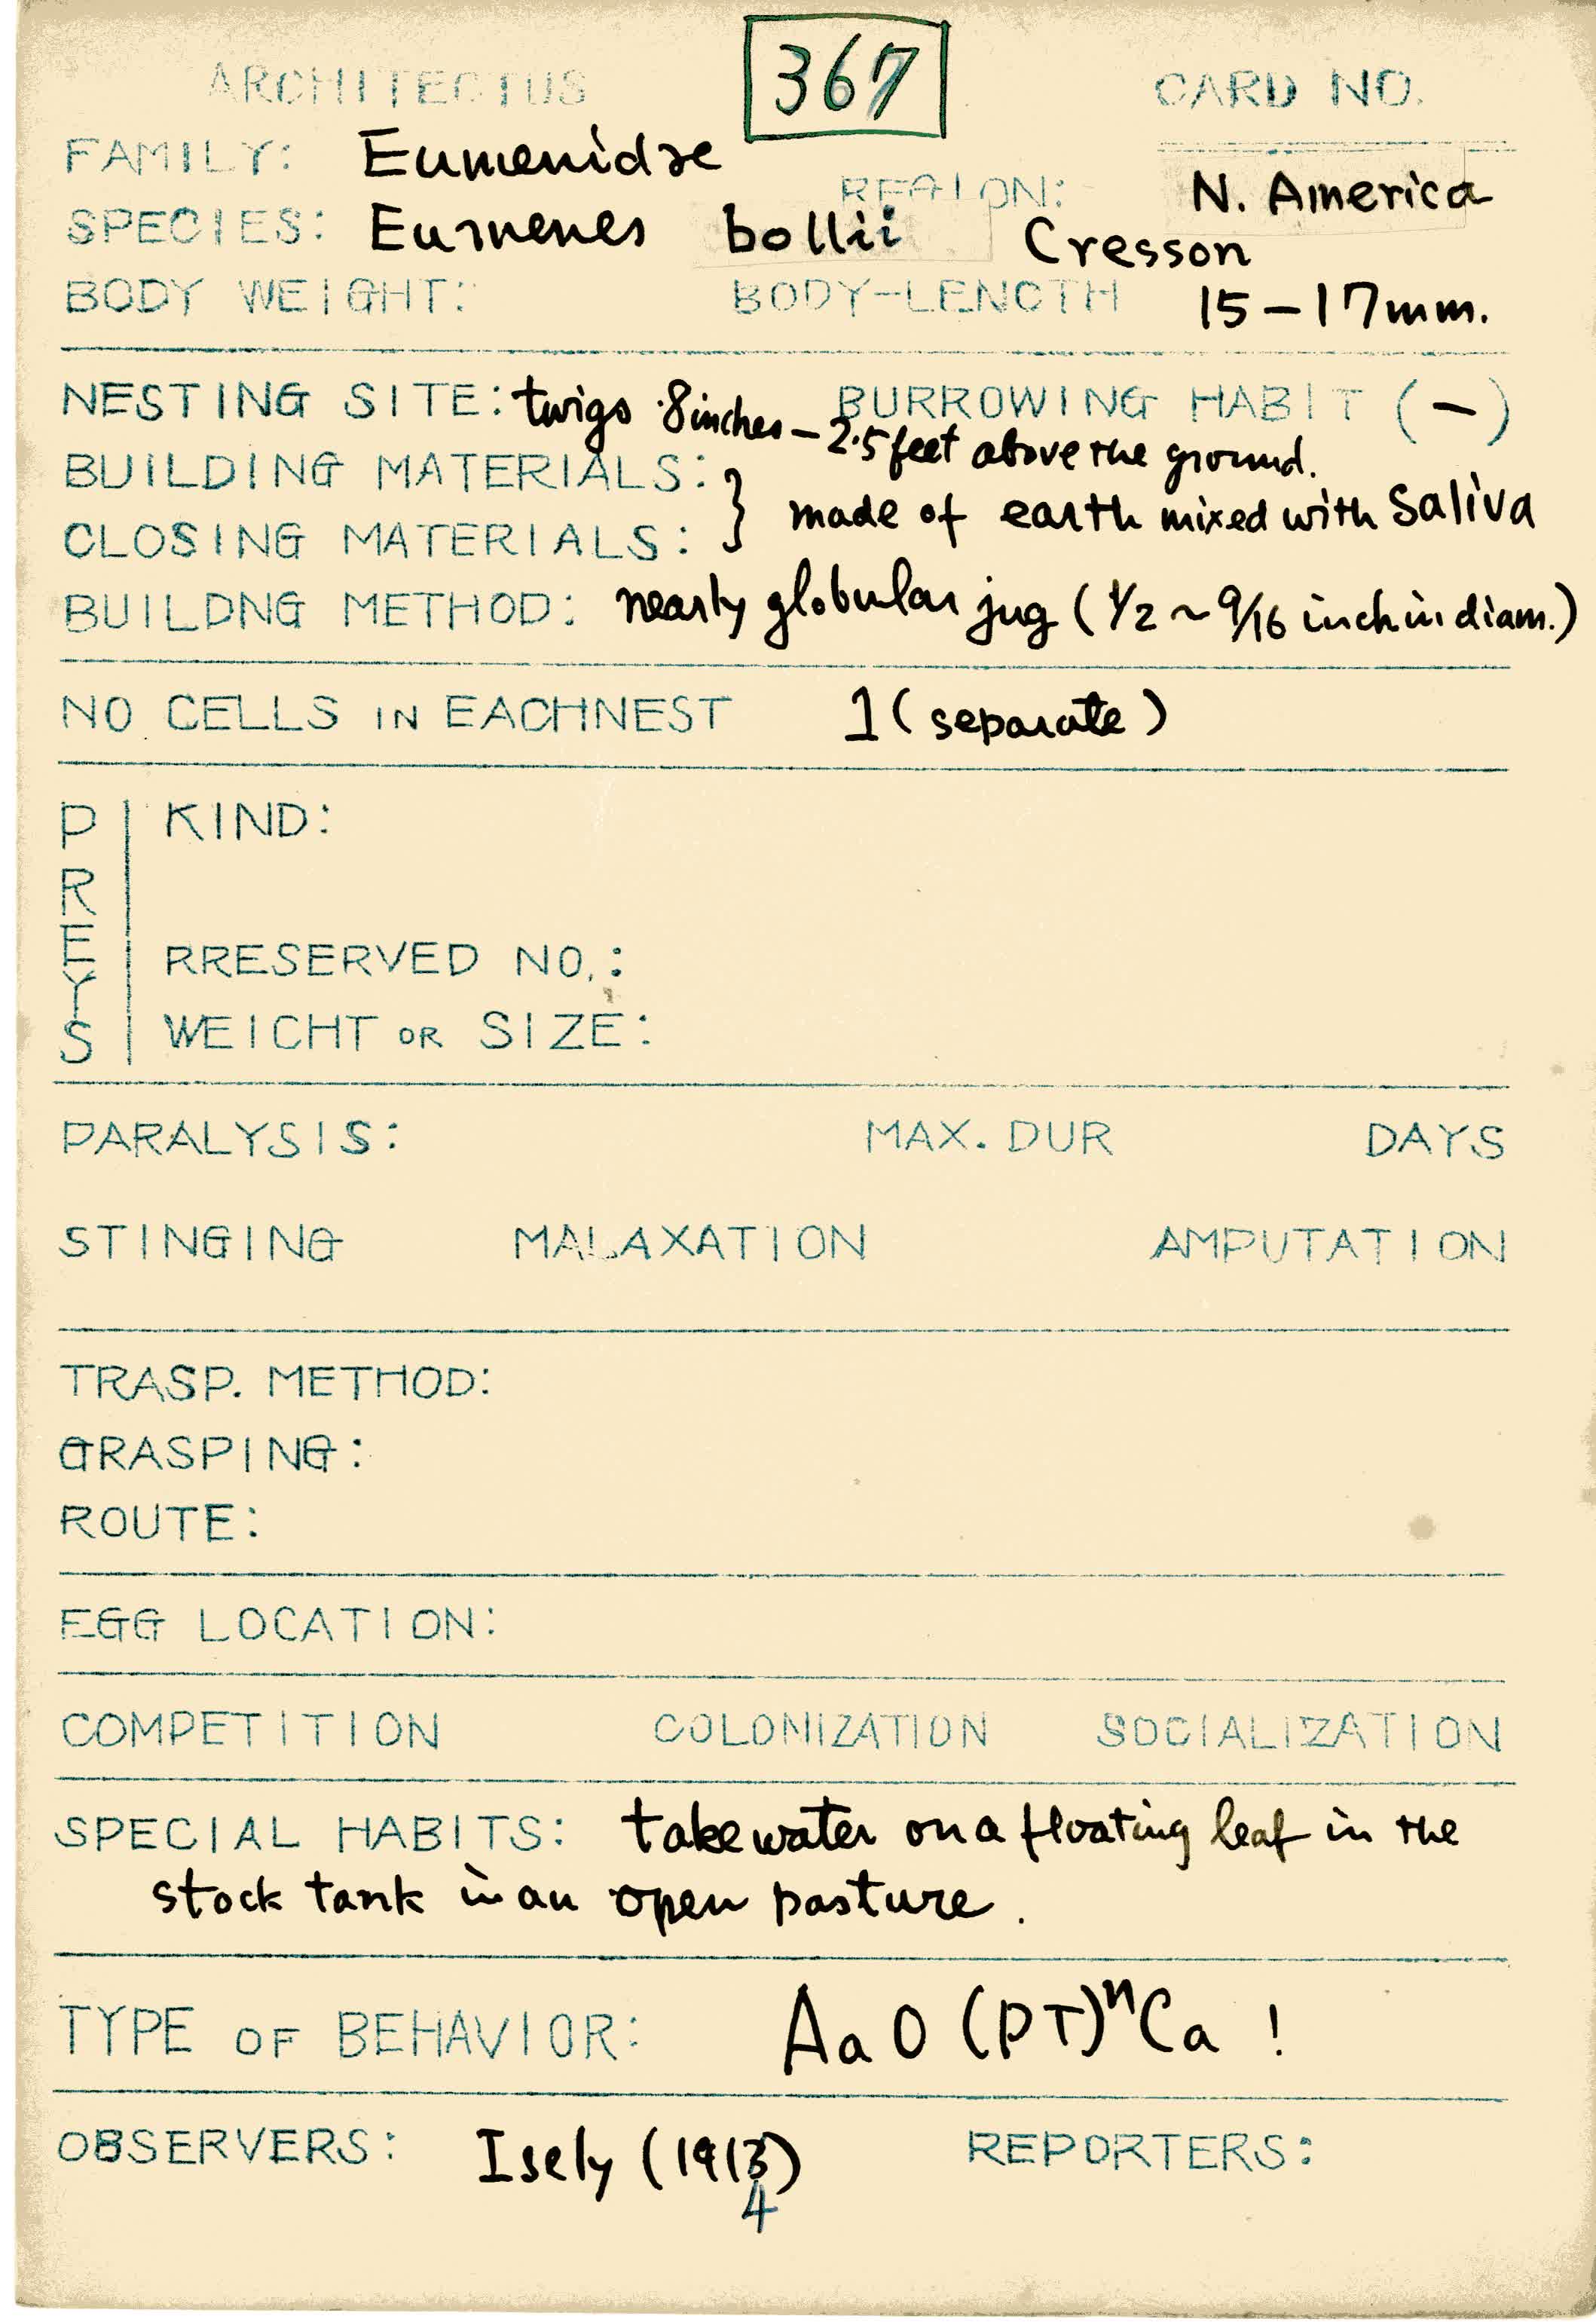 ARCHITECTUS 367 CARD NO.
FAMILY: Eumenidae
REGION: N. America
SPECIES: Eumenes bollii Cresson
BODY WEIGHT: BODY-LENGTH 15-17mm.
NESTING SITE: twigs 8 inches - 2.5 feet above the ground. BURROWING HABIT (-)
BUILDING MATERIALS:
CLOSING MATERIALS: } made of earth mixed with saliva
BUILDNG METHOD: nearly globular jug (1/2 ~ 9/16 inch in diam.)
NO. CELLS IN EACHNEST 1 (separate)
PREYS
KIND:
RRESERVED NO.:
WEICHT OR SIZE:
PARALYSIS: MAX. DUR DAYS
STINGING MALAXATION AMPUTATION
TRASP. METHOD:
GRASPING:
ROUTE:
EGG LOCATION:
COMPETITION COLONIZATION SOCIALIZATION
SPECIAL HABITS: take water on a floating leaf in the
stock tank in an open pasture.
TYPE OF BEHAVIOR: AaO(PT)ⁿCa !
OBSERVERS: Isely (1913) REPORTERS:
4